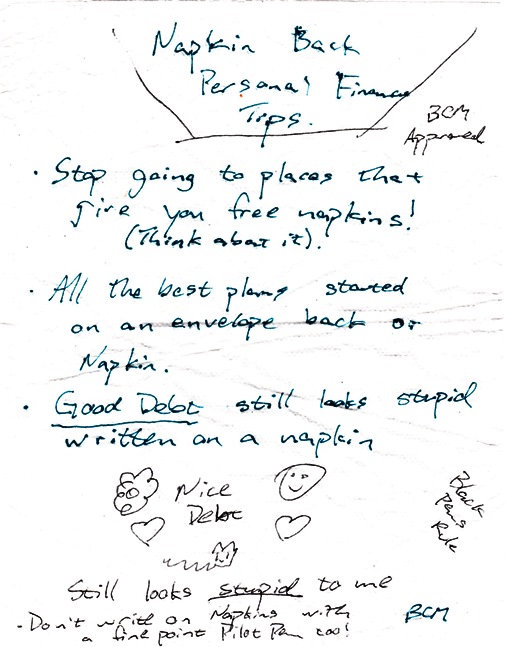 Napkin Back
Personal Finance
Tips.
BCM
Approved
• Stop going to places that
give you free napkins!
(Think about it).
• All the best plans started
on an envelope back or
Napkin.
• Good Debt still looks stupid
written on a napkin
Nice
Debt
Black
Pens
Rule
Still looks stupid to me
- Don't write on Napkins with
a fine point Pilot Pen too!
BCM